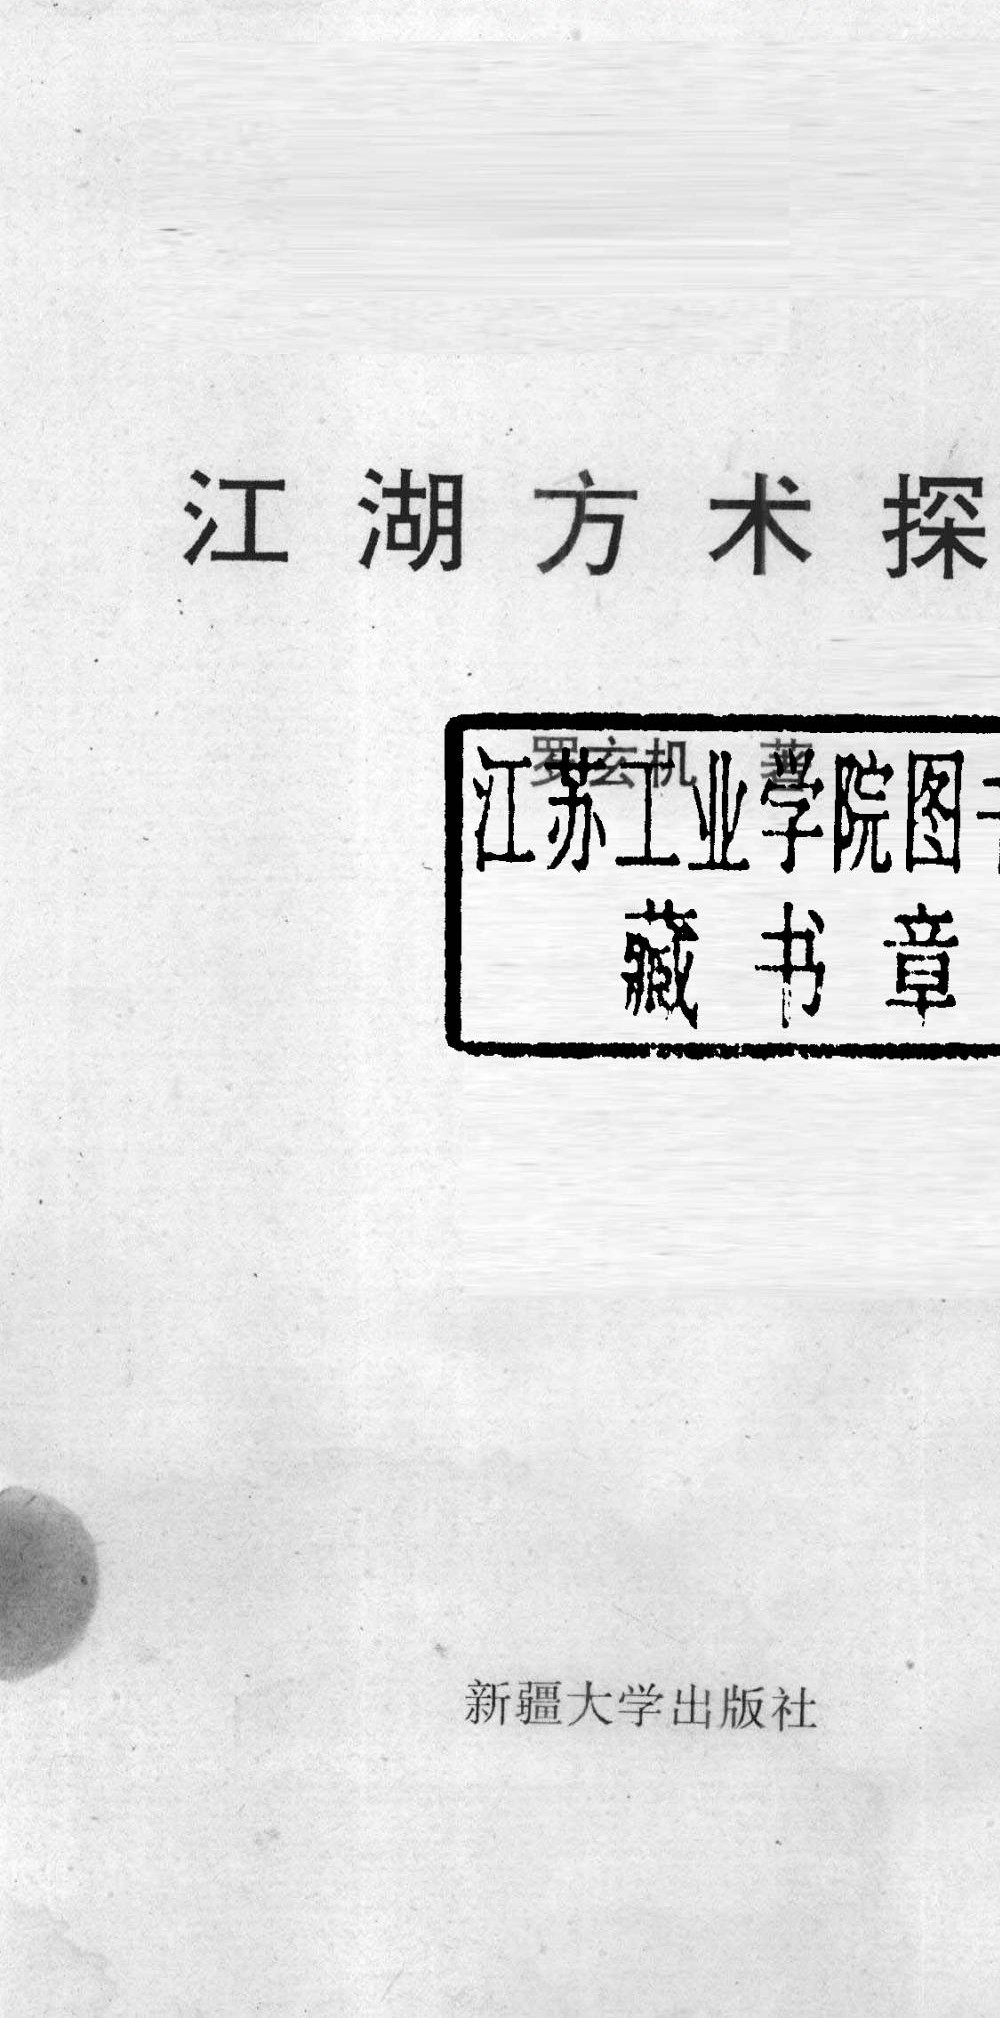 江湖方术探
罗玄机 著
江苏工业学院图
藏书章
新疆大学出版社